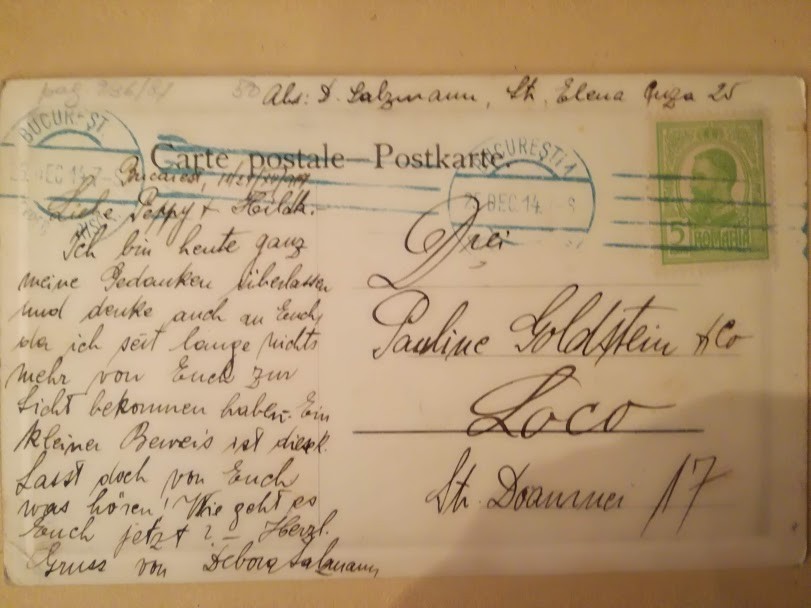 Abs: D. Salzmann, Str. Elena Cuza 25
BUCUREST
DEC 14
BUCURESTI 1
25 DEC 14
Carte postale – Postkarte.
5 ROMANIA
Bucarest,
Liebe Peppy + Hilda.
Ich bin heute ganz
meine Gedanken überlassen
und denke auch an Euch,
da ich seit lange nichts
mehr von Euch zur
Sicht bekommen haben. Ein
kleiner Beweis ist diese K.
Lasst doch von Euch
was hören! Wie geht es
Euch jetzt? – Herzl.
Gruss von Debora Salzmann
Drei
Pauline Goldstein & Co
Loco
Str. Doamnei 17